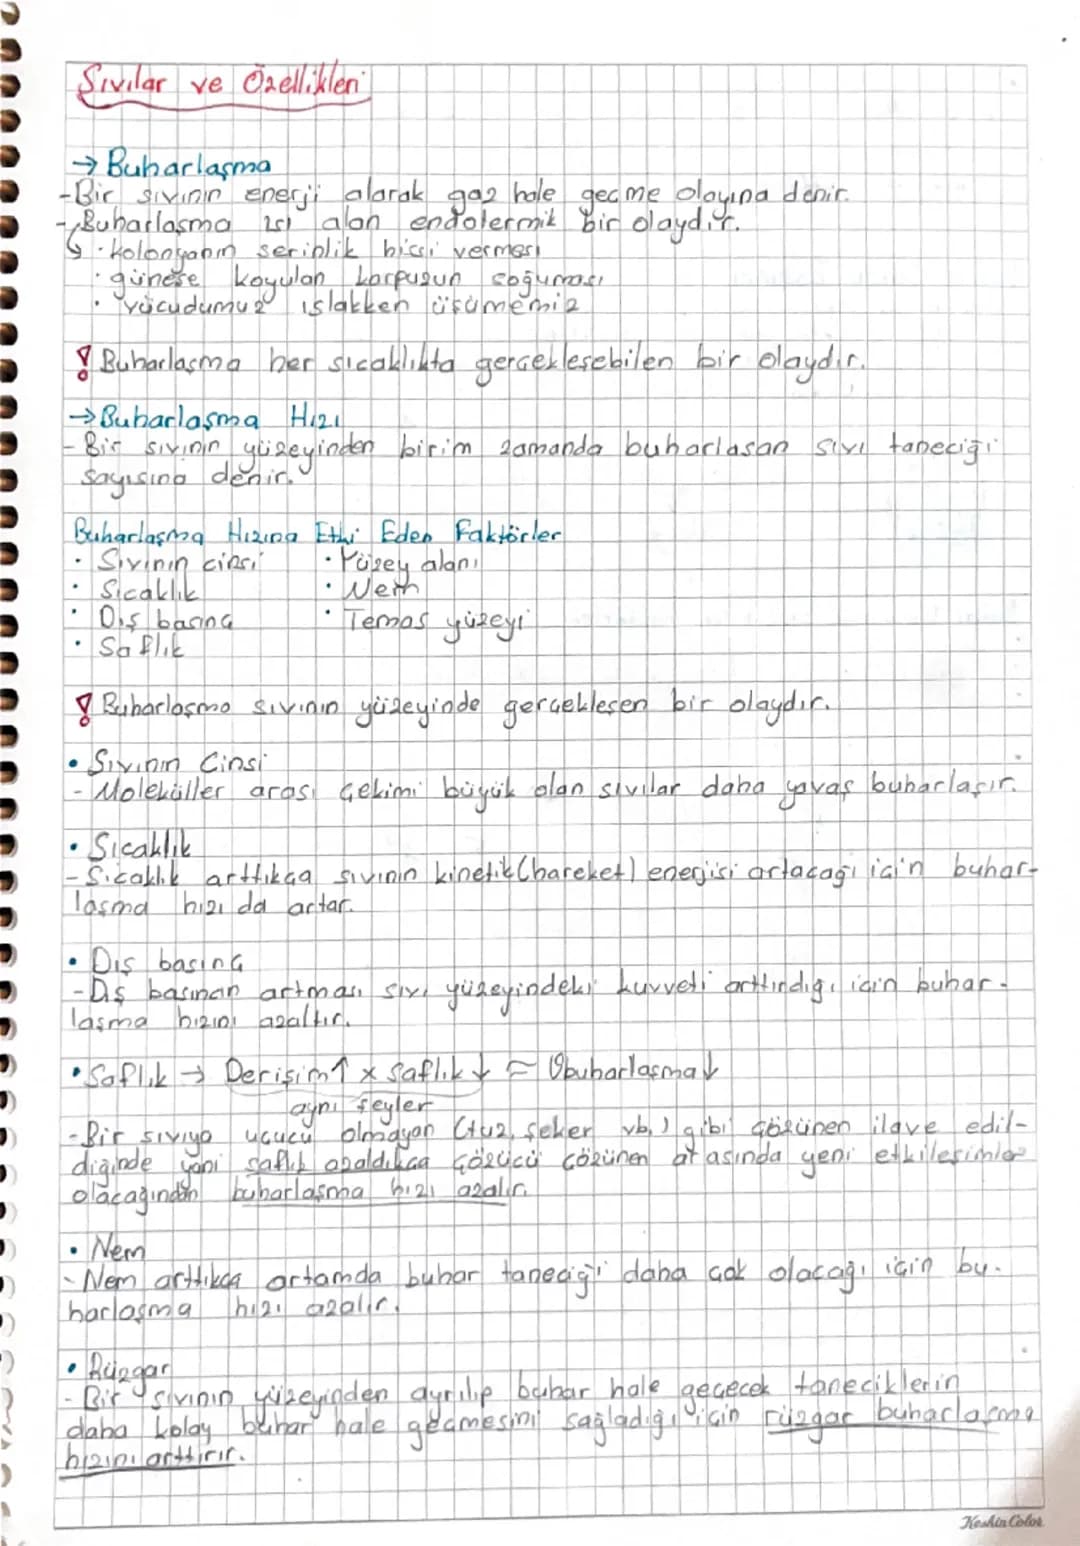 Sıvılar ve Özellikleri
→ Buharlaşma
- Bir sıvının enerji alarak gaz hale geçme olayına denir.
- Buharlaşma ısı alan endotermik bir olaydır.
↳ · Kolonyanın serinlik hissi vermesi
· güneşe koyulan karpuzun soğuması
· Vücudumuz ıslakken üşümemiz
! Buharlaşma her sıcaklıkta gerçekleşebilen bir olaydır.
→ Buharlaşma Hızı
- Bir sıvının yüzeyinden birim zamanda buharlaşan sıvı taneciği
sayısına denir.
Buharlaşma Hızına Etki Eden Faktörler
· Sıvının cinsi · Yüzey alanı
· Sıcaklık · Nem
· Dış basınç · Temas yüzeyi
· Saflık
! Buharlaşma sıvının yüzeyinde gerçekleşen bir olaydır.
• Sıvının Cinsi
- Moleküller arası çekimi büyük olan sıvılar daha yavaş buharlaşır.
• Sıcaklık
- Sıcaklık arttıkça sıvının kinetik (hareket) enerjisi artacağı için buhar-
laşma hızı da artar.
• Dış basınç
- Dış basıncın artması sıvı yüzeyindeki kuvveti arttırdığı için buhar-
laşma hızını azaltır.
• Saflık → Derişim↑ x saflık↓ = buharlaşma↓
aynı şeyler
- Bir sıvıya uçucu olmayan (tuz, şeker vb.) gibi çözünen ilave edil-
diğinde yani saflık azaldıkça çözücü çözünen arasında yeni etkileşimler
olacağından buharlaşma hızı azalır.
• Nem
- Nem arttıkça ortamda buhar taneciği daha çok olacağı için bu-
harlaşma hızı azalır.
• Rüzgar
- Bir sıvının yüzeyinden ayrılıp buhar hale geçecek taneciklerin
daha kolay buhar hale geçmesini sağladığı için rüzgar buharlaşma
hızını arttırır.
Keskin Color